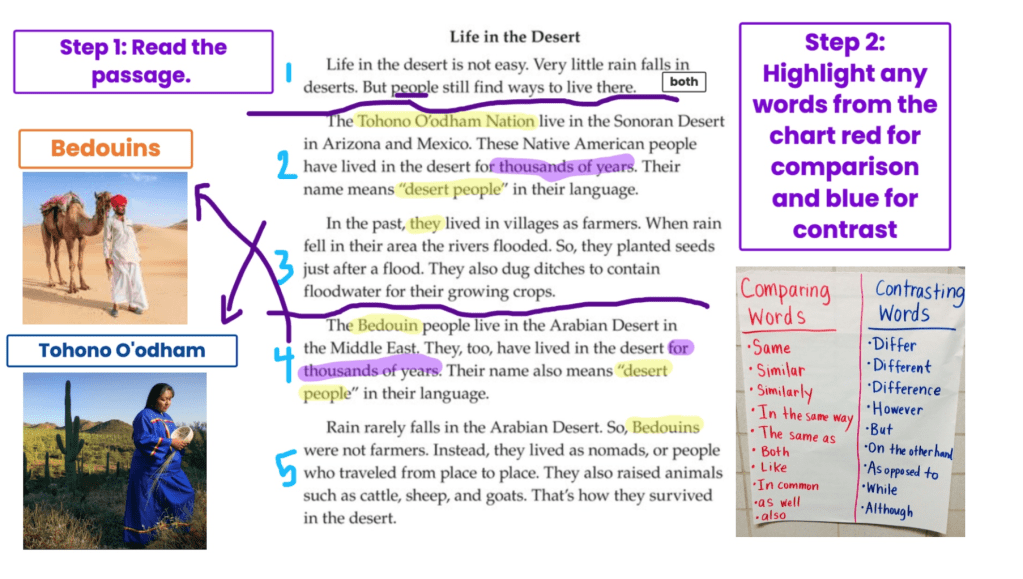 Step 1: Read the
passage.
Bedouins
Tohono O'odham
Life in the Desert
1
Life in the desert is not easy. Very little rain falls in
deserts. But people still find ways to live there.
both
The Tohono O'odham Nation live in the Sonoran Desert
in Arizona and Mexico. These Native American people
2
have lived in the desert for thousands of years. Their
name means "desert people" in their language.
In the past, they lived in villages as farmers. When rain
fell in their area the rivers flooded. So, they planted seeds
3
just after a flood. They also dug ditches to contain
floodwater for their growing crops.
The Bedouin people live in the Arabian Desert in
the Middle East. They, too, have lived in the desert for
4
thousands of years. Their name also means "desert
people" in their language.
Rain rarely falls in the Arabian Desert. So, Bedouins
were not farmers. Instead, they lived as nomads, or people
5
who traveled from place to place. They also raised animals
such as cattle, sheep, and goats. That's how they survived
in the desert.
Step 2:
Highlight any
words from the
chart red for
comparison
and blue for
contrast
Comparing
Words
• Same
• Similar
• Similarly
• In the same way
• The same as
• Both
• Like
• In common
• as well
• also
Contrasting
Words
• Differ
• Different
• Difference
• However
• But
• On the other hand
• As opposed to
• While
• Although